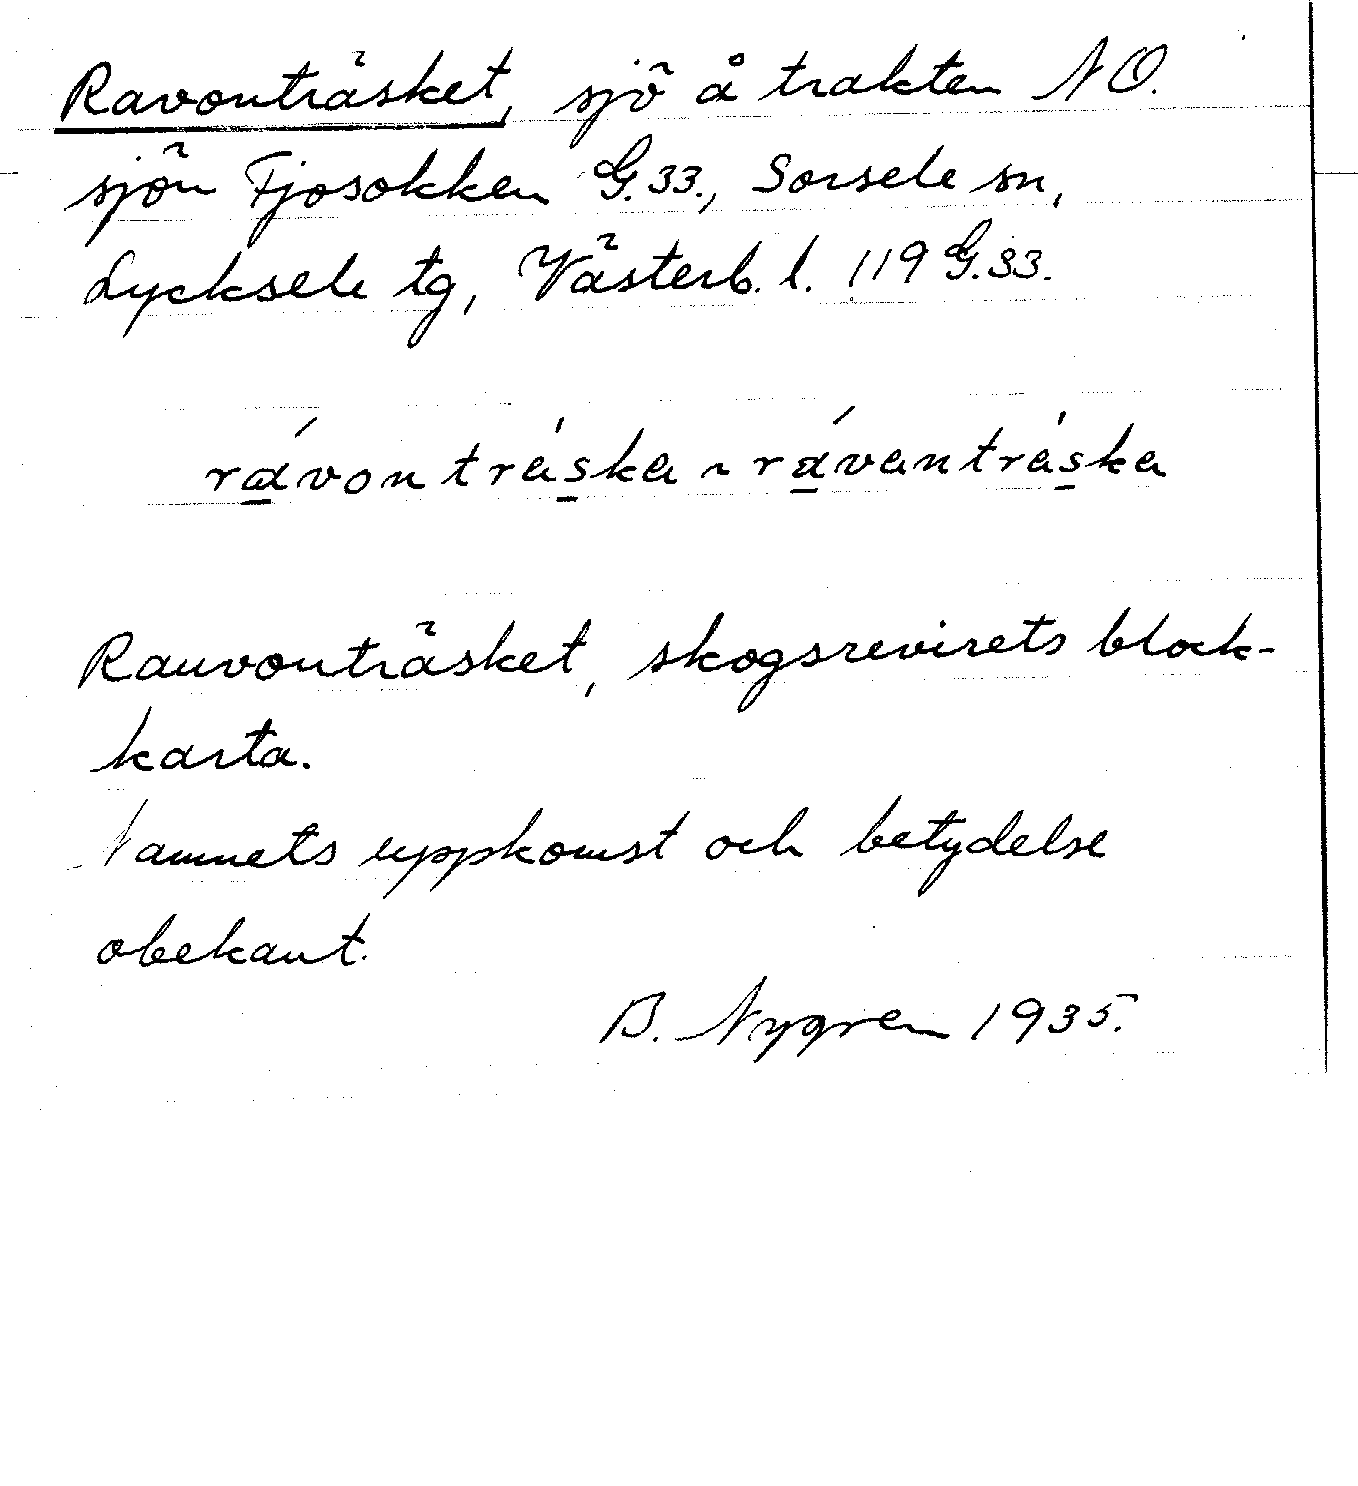 Ravonträsket, sjö å trakten NO.
sjön Fjosokken G.33., Sorsele sn,
Lycksele tg, Västerb. l. 119 G.33.
rávonträ́ska ~ rávanträ́ska
Rauvonträsket, skogsrevirets block-
karta.
Namnets uppkomst och betydelse
obekant.
B. Nygren 1935.